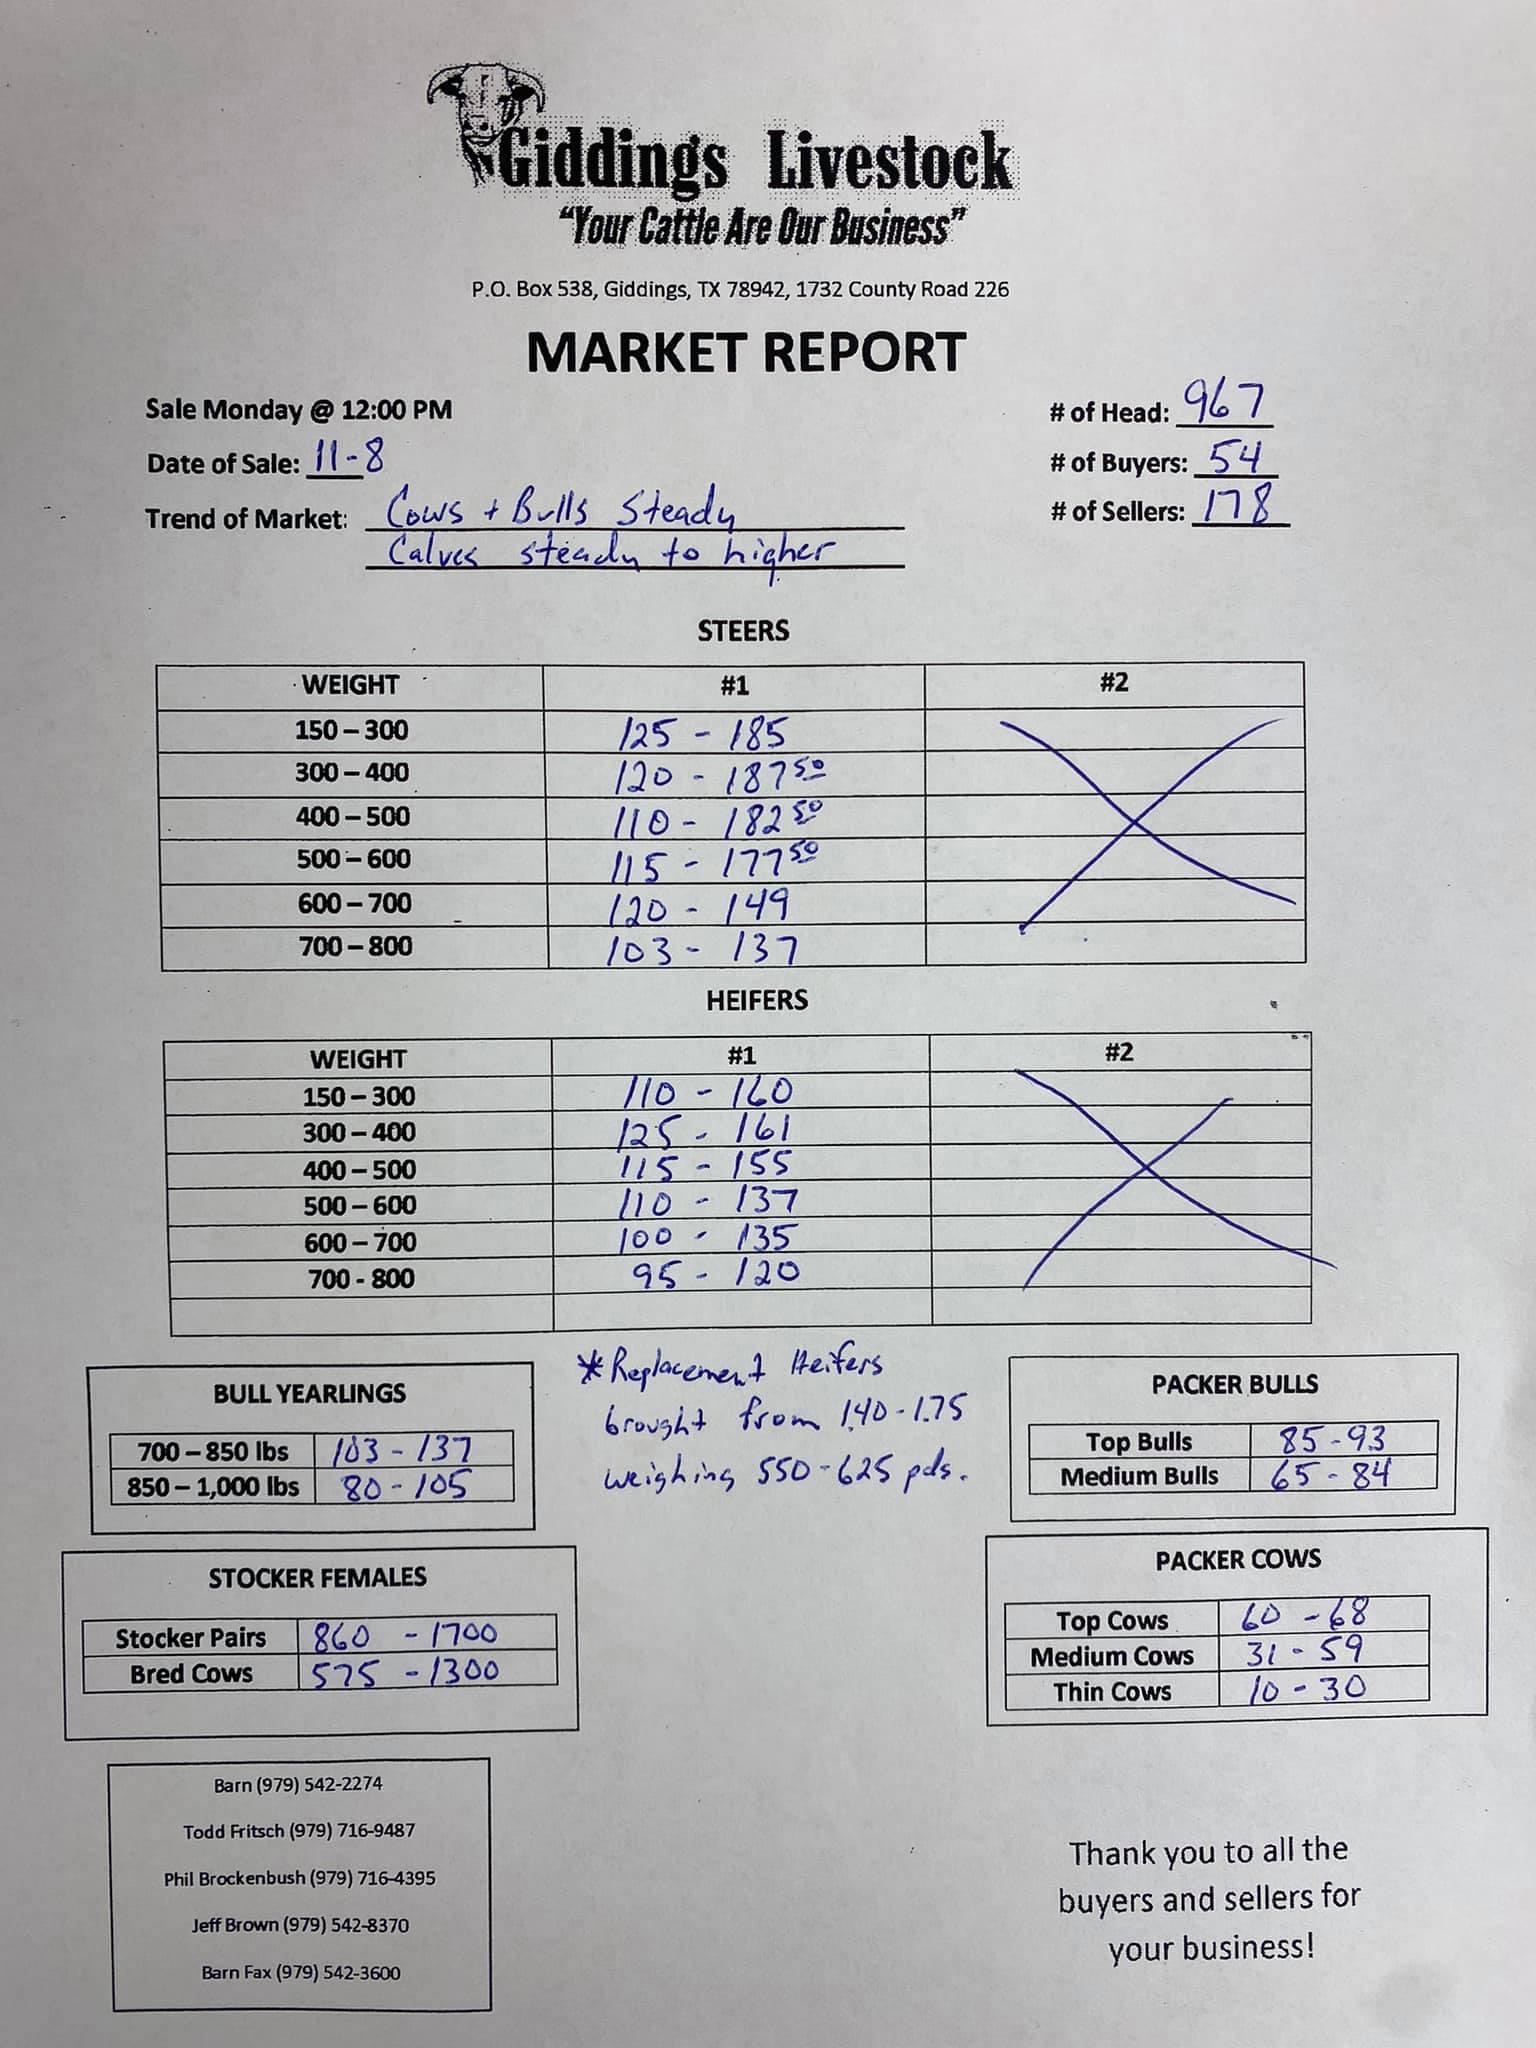 Giddings Livestock
"Your Cattle Are Our Business"
P.O. Box 538, Giddings, TX 78942, 1732 County Road 226
MARKET REPORT
Sale Monday @ 12:00 PM
# of Head: 967
Date of Sale: 11-8
# of Buyers: 54
Trend of Market: Cows + Bulls Steady
# of Sellers: 178
Calves steady to higher
STEERS
WEIGHT #1 #2
150 – 300 125 - 185
300 – 400 120 - 187 50
400 – 500 110 - 182 50
500 – 600 115 - 177 50
600 – 700 120 - 149
700 – 800 103 - 137
HEIFERS
WEIGHT #1 #2
150 – 300 110 - 160
300 – 400 125 - 161
400 – 500 115 - 155
500 – 600 110 - 137
600 – 700 100 - 135
700 - 800 95 - 120
*Replacement Heifers
brought from 1.40-1.75
weighing 550-625 pds.
BULL YEARLINGS
700 – 850 lbs 103 - 137
850 – 1,000 lbs 80 - 105
PACKER BULLS
Top Bulls 85 - 93
Medium Bulls 65 - 84
STOCKER FEMALES
Stocker Pairs 860 - 1700
Bred Cows 575 - 1300
PACKER COWS
Top Cows 60 - 68
Medium Cows 31 - 59
Thin Cows 10 - 30
Barn (979) 542-2274
Todd Fritsch (979) 716-9487
Phil Brockenbush (979) 716-4395
Jeff Brown (979) 542-8370
Barn Fax (979) 542-3600
Thank you to all the
buyers and sellers for
your business!